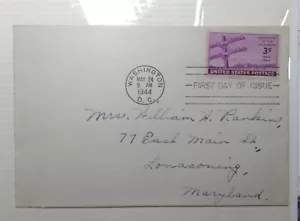 WASHINGTON
MAY 24
9 AM
1944
D. C.
3¢
UNITED STATES POSTAGE
FIRST DAY OF ISSUE
Mrs. William H. Rankin,
77 East Main St,
Lonaconing,
Maryland.